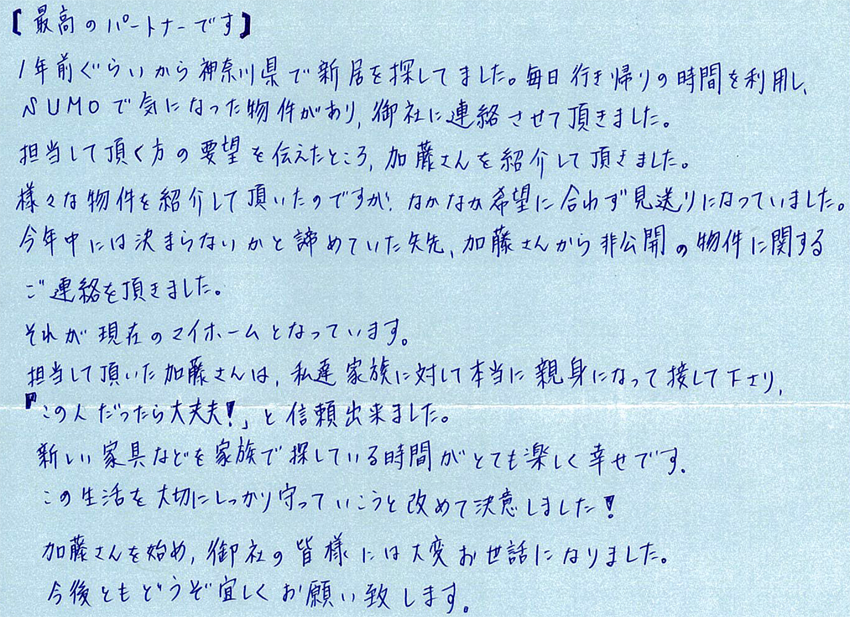 【最高のパートナーです】
1年前ぐらいから神奈川県で新居を探してました。毎日行き帰りの時間を利用し、
SUMOで気になった物件があり、御社に連絡させて頂きました。
担当して頂く方の要望を伝えたところ、加藤さんを紹介して頂きました。
様々な物件を紹介して頂いたのですが、なかなか希望に合わず見送りになっていました。
今年中には決まらないかと諦めていた矢先、加藤さんから非公開の物件に関する
ご連絡を頂きました。
それが現在のマイホームとなっています。
担当して頂いた加藤さんは、私達家族に対して本当に親身になって接して下さり、
『この人だったら大丈夫!』と信頼出来ました。
新しい家具などを家族で探している時間がとても楽しく幸せです。
この生活を大切にしっかり守っていこうと改めて決意しました!
加藤さんを始め、御社の皆様には大変お世話になりました。
今後ともどうぞ宜しくお願い致します。